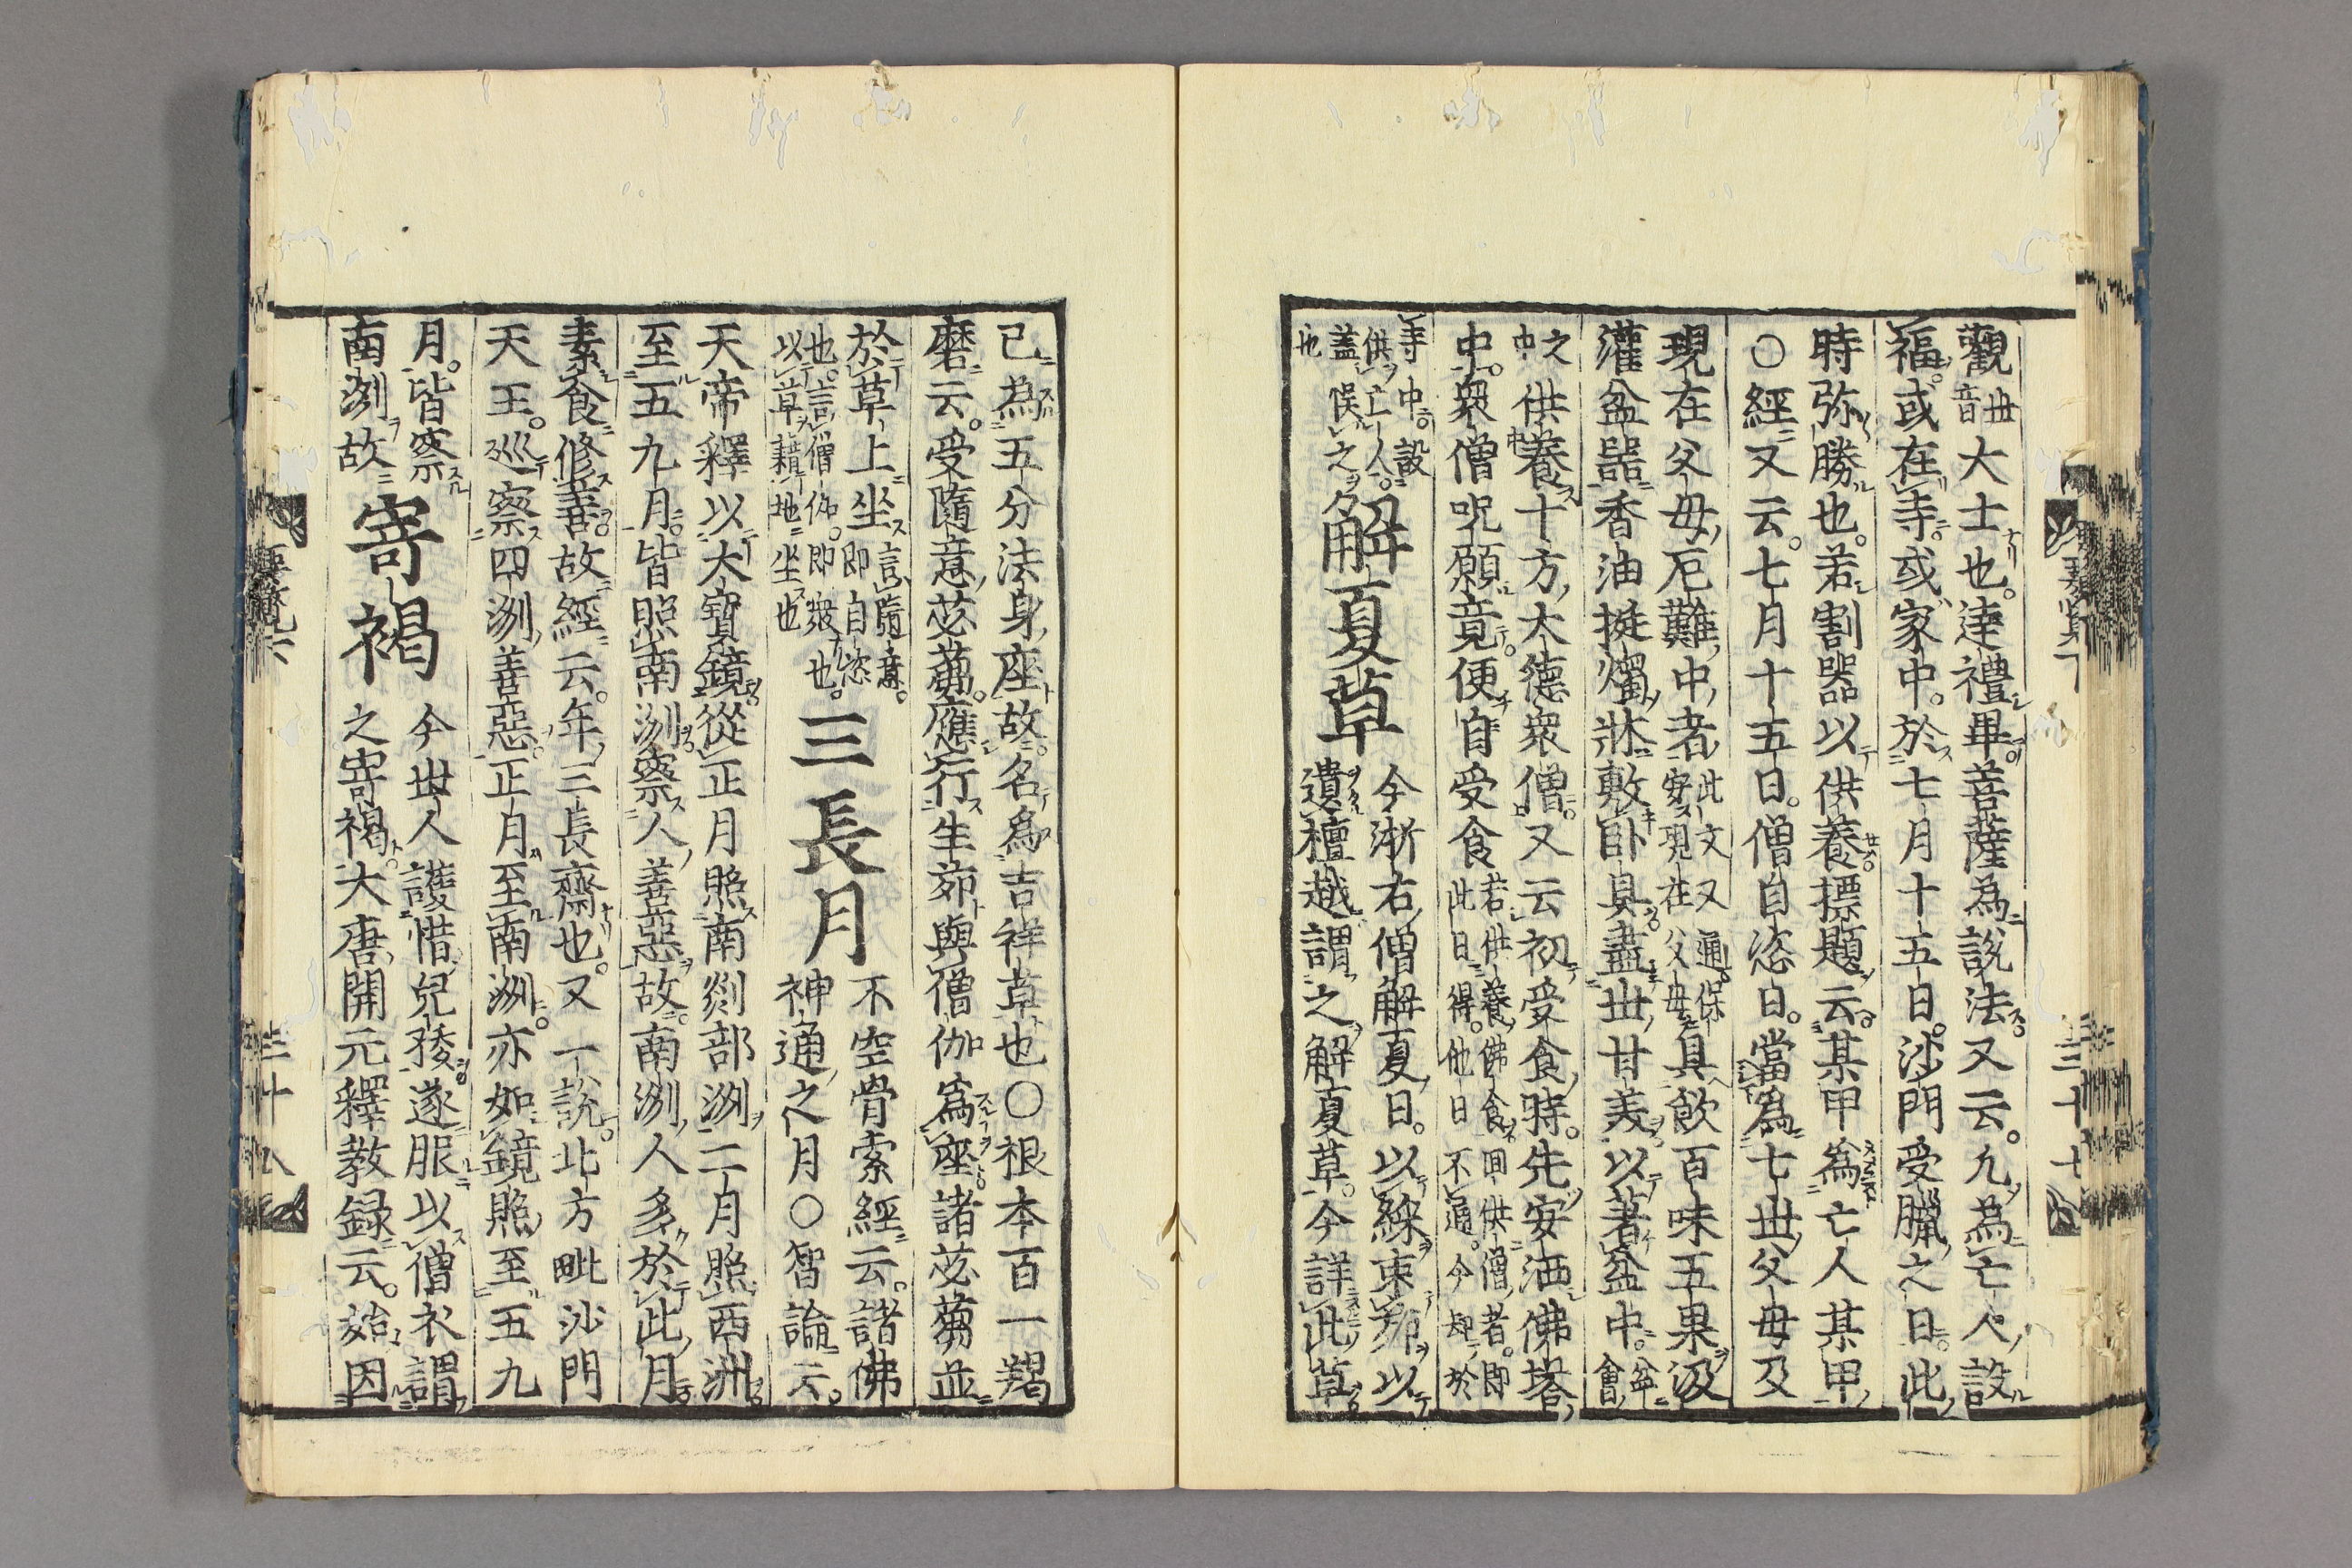 觀世音大士也。達禮畢菩薩為說法又云。凢為亡人設
福。或在寺。或家中。於七月十五日。沙門受臘之日。此
時弥勝也。若割器以供養標題云。某甲為亡人某甲
〇經又云。七月十五日。僧自恣日。當為七世父母及
現在父母厄難中者此文又通。保安現在父母具飲百味五果汲
灌盆器香油挺燭牀敷卧具盡世甘美以著盆中盆會
之中供養十方大德衆僧。又云初受食時。先安佛塔
中。衆僧呪願竟便自受食若供養佛食回供僧者。即此日得。他日不通。今却於
寺中。設供亡人。蓋悞之也
解夏草
今浙右僧解夏日。以綵束茆以
遺檀越謂之解夏草。今詳此草
三十七
已為五分法身座故名為吉祥草也〇根本百一羯
磨云。受隨意苾蒭。應行生茆與僧伽為座諸苾蒭並
於草上坐言隨意。即自恣也。言僧伽。即衆也。以草藉地坐也
三長月
不空骨索經云。諸佛
神通之月〇智論云。
天帝釋以大寶鏡從正月照南剡部洲二月照西洲
至五九月。皆照南洲察人善惡故。南洲人多於此月
素食修善。故經云。年三長齋也。又一說。北方毗沙門
天王。巡察四洲善惡。正月至南洲。亦如鏡照至五九
月。皆察
南洲故
寄褐
今世人護惜兒遂服以僧衣謂
之寄褐大唐開元釋教録云。始因
要覧
三十八